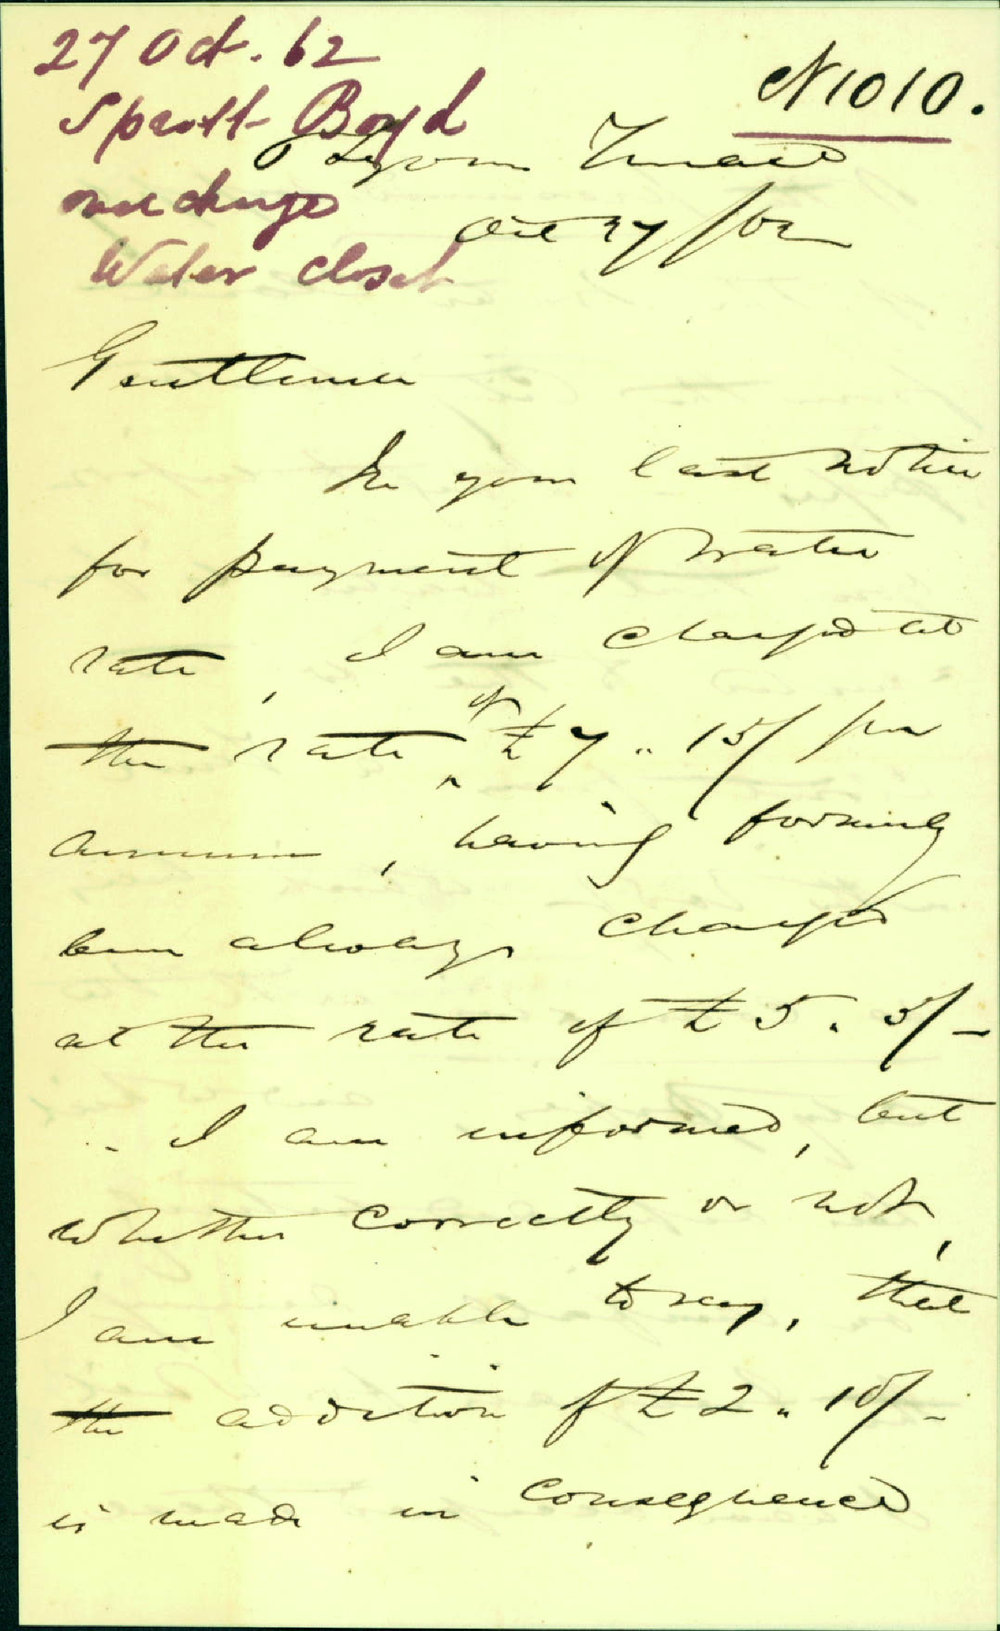 27 Oct. 62
Sprott Boyd
over charge
Water closet
N 1010.
Lyon Terrace
Oct 27/62
Gentlemen
In your last notice
for payment of water
rate, I am charged at
the rate of £7 " 15/ per
annum, having formerly
been always charged
at the rate of £5. 5/-
I am informed, but
whether correctly or not,
I am unable to say, that
the addition of £2 " 10/-
is made in consequence